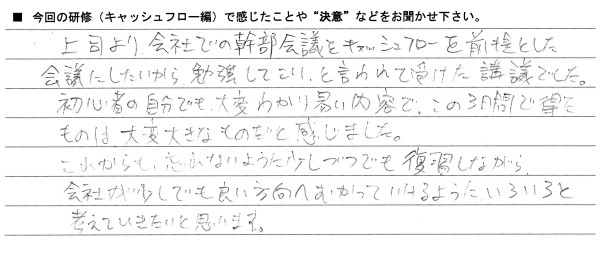 ■ 今回の研修（キャッシュフロー編）で感じたことや“決意”などをお聞かせ下さい。
上司より、会社での幹部会議とキャッシュフローを前提とした
会議にしたいから、勉強してこい、と言われて受けた講議でした。
初心者の自分でも、大変わかり易い内容で、この3日間で得た
ものは、大変大きなものだと感じました。
これからも、忘れないように少しづつでも復習しながら、
会社が少しでも良い方向へむかっていけるように、いろいろと
考えていきたいと思います。